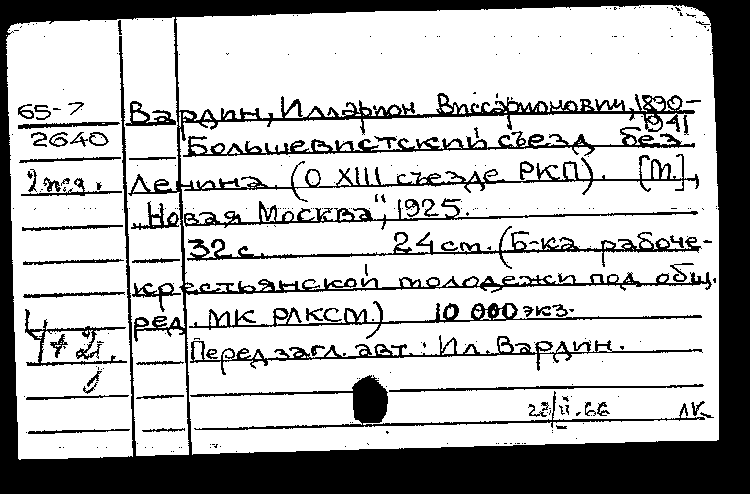 65-7 Вардин, Илларион Виссарионович, 1890-
1941
2640 Большевистский съезд без
2 экз. Ленина. (О XIII съезде РКП). [М.],
"Новая Москва", 1925.
32 с. 24 см. (Б-ка рабоче-
крестьянской молодежи под общ.
ред. МК РЛКСМ.) 10 000 экз.
Перед загл. авт.: Ил. Вардин.
28/II.66 ЛК